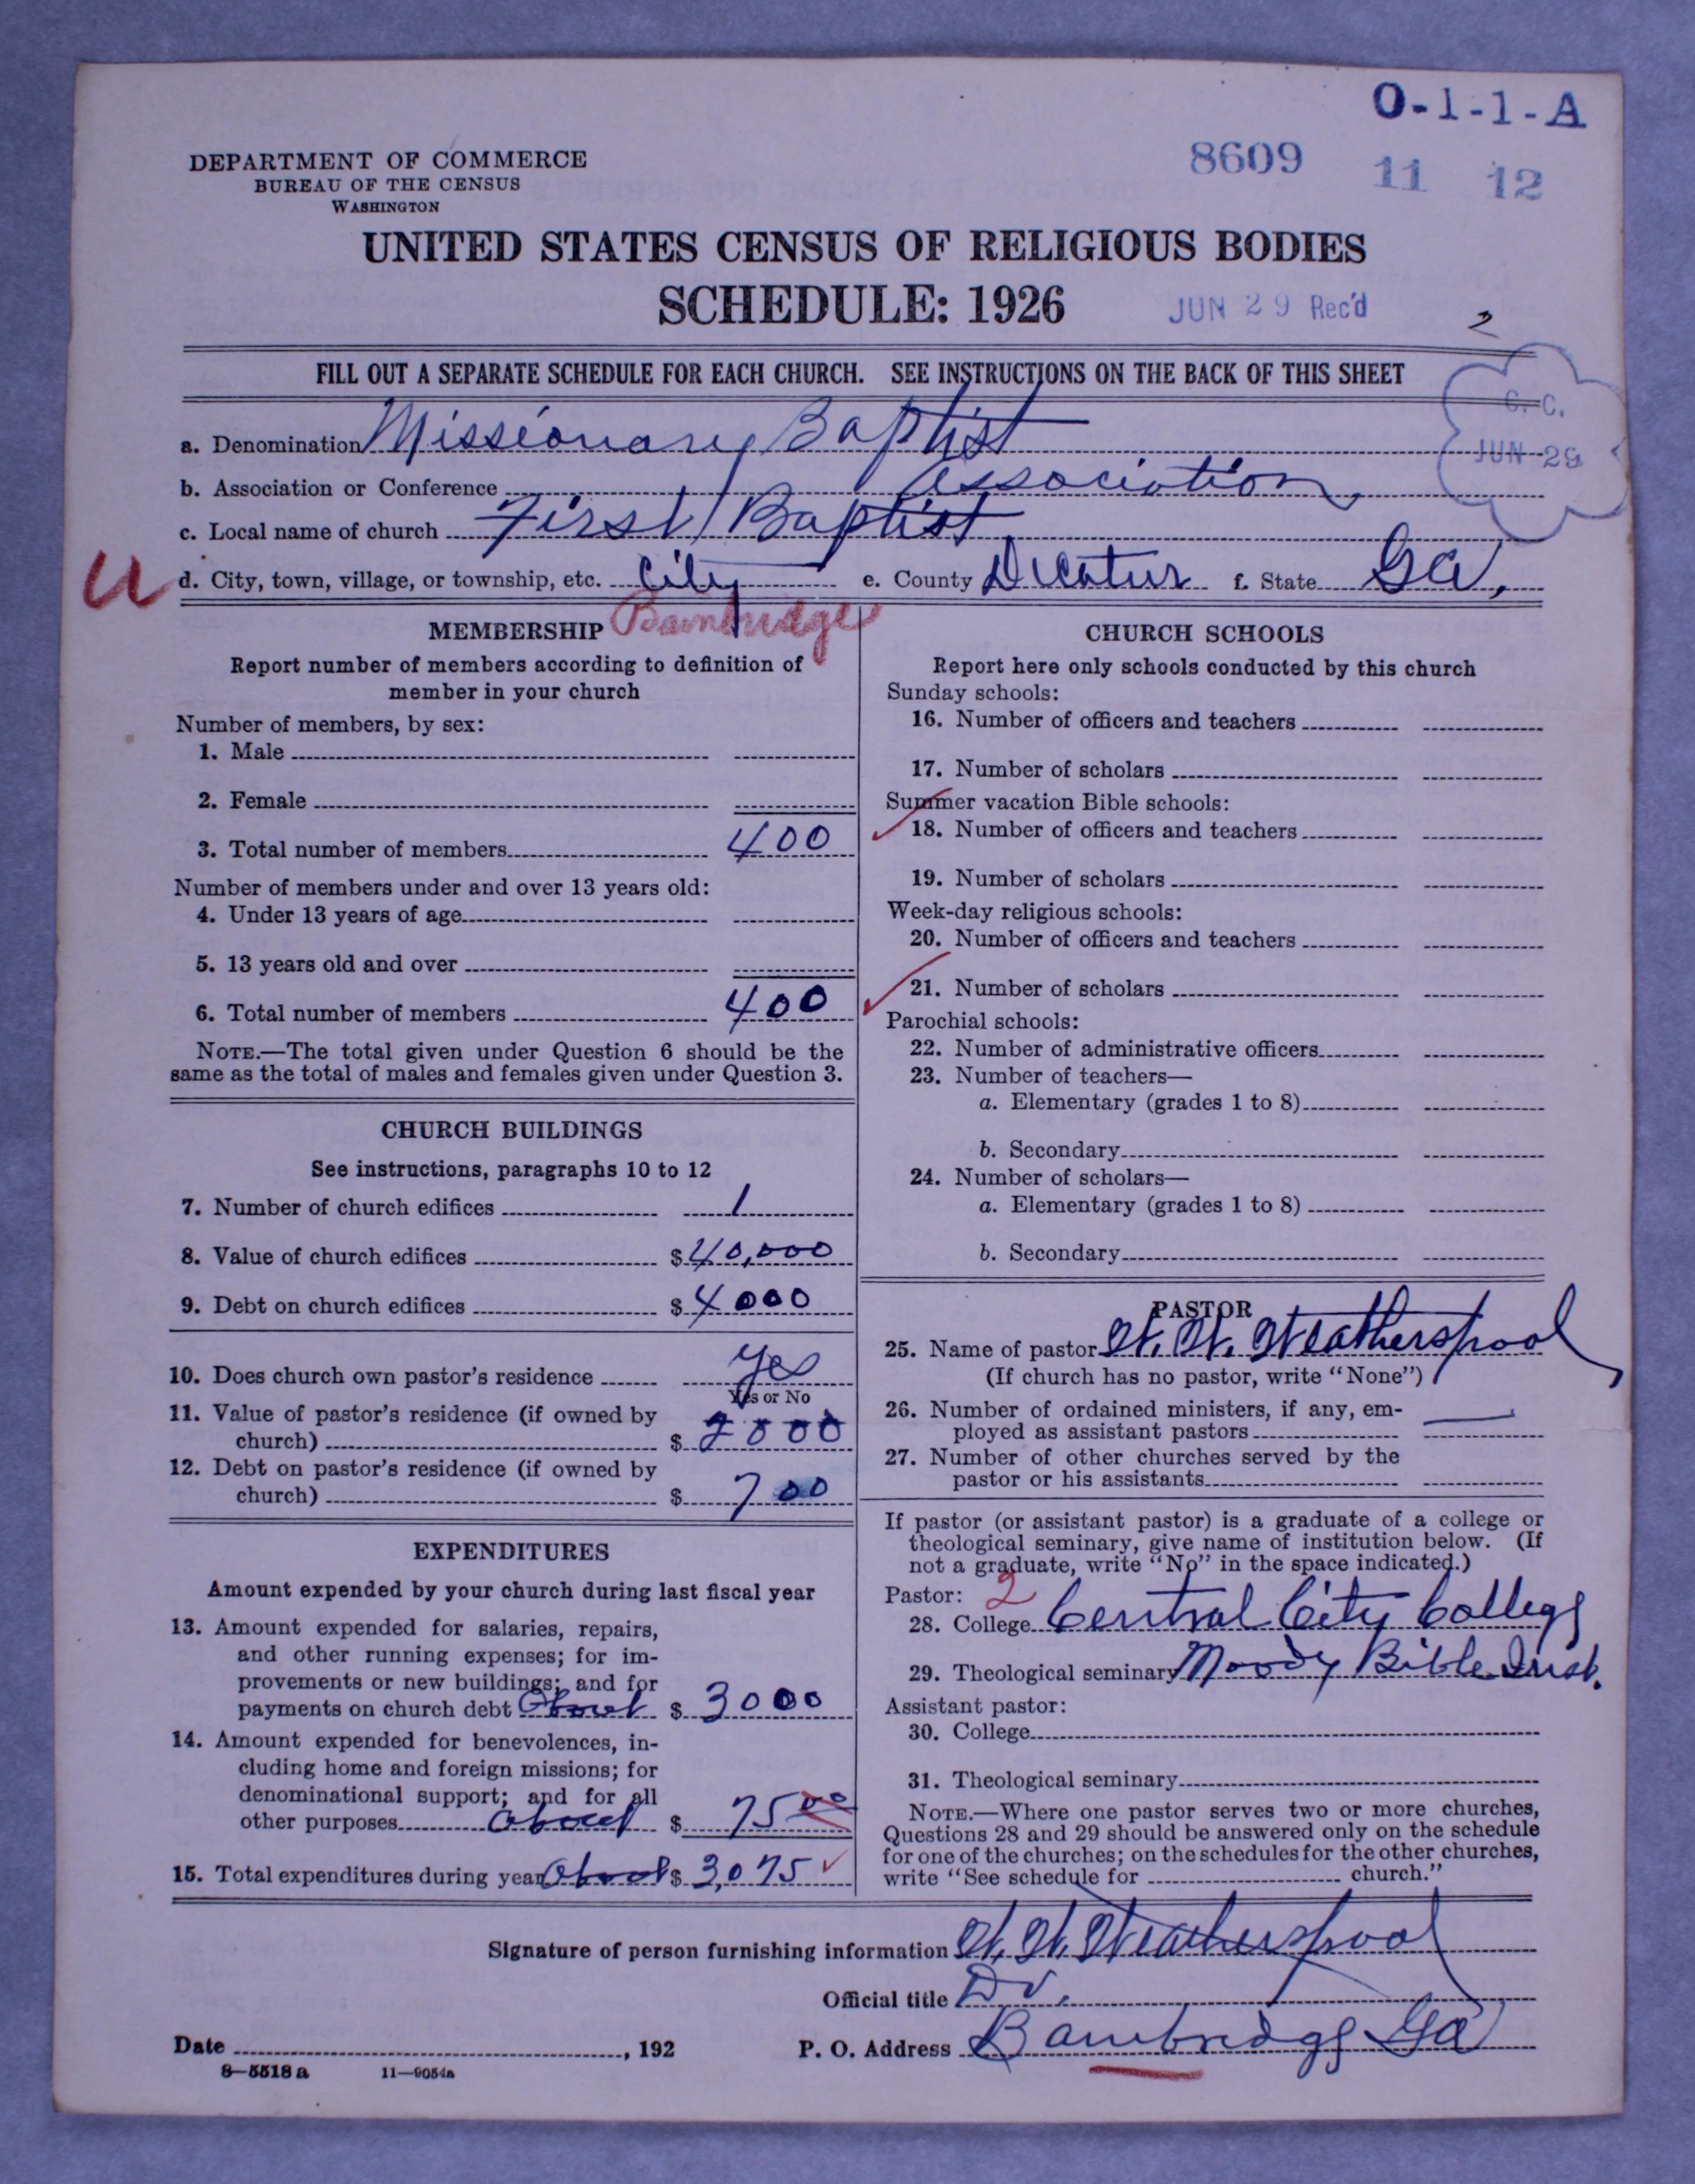 O-1-1-A
DEPARTMENT OF COMMERCE
BUREAU OF THE CENSUS
WASHINGTON
8609 11 12
UNITED STATES CENSUS OF RELIGIOUS BODIES
SCHEDULE: 1926
JUN 29 Rec'd
2
FILL OUT A SEPARATE SCHEDULE FOR EACH CHURCH. SEE INSTRUCTIONS ON THE BACK OF THIS SHEET
C. C.
JUN 29
a. Denomination Missionary Baptist
b. Association or Conference Association
c. Local name of church First Baptist
U d. City, town, village, or township, etc. City e. County Decatur f. State Ga,
Bambridge
MEMBERSHIP
Report number of members according to definition of
member in your church
Number of members, by sex:
1. Male
2. Female
3. Total number of members 400
Number of members under and over 13 years old:
4. Under 13 years of age
5. 13 years old and over
6. Total number of members 400
NOTE.—The total given under Question 6 should be the
same as the total of males and females given under Question 3.
CHURCH BUILDINGS
See instructions, paragraphs 10 to 12
7. Number of church edifices 1
8. Value of church edifices $40,000
9. Debt on church edifices $4000
10. Does church own pastor's residence Yes
Yes or No
11. Value of pastor's residence (if owned by
church) $2000
12. Debt on pastor's residence (if owned by
church) $700
EXPENDITURES
Amount expended by your church during last fiscal year
13. Amount expended for salaries, repairs,
and other running expenses; for im-
provements or new buildings; and for
payments on church debt About $3000
14. Amount expended for benevolences, in-
cluding home and foreign missions; for
denominational support; and for all
other purposes About $75 00
15. Total expenditures during year About $3,075
CHURCH SCHOOLS
Report here only schools conducted by this church
Sunday schools:
16. Number of officers and teachers
17. Number of scholars
Summer vacation Bible schools:
18. Number of officers and teachers
19. Number of scholars
Week-day religious schools:
20. Number of officers and teachers
21. Number of scholars
Parochial schools:
22. Number of administrative officers
23. Number of teachers—
a. Elementary (grades 1 to 8)
b. Secondary
24. Number of scholars—
a. Elementary (grades 1 to 8)
b. Secondary
PASTOR
25. Name of pastor W. W. Weatherspool
(If church has no pastor, write "None")
26. Number of ordained ministers, if any, em-
ployed as assistant pastors —
27. Number of other churches served by the
pastor or his assistants
If pastor (or assistant pastor) is a graduate of a college or
theological seminary, give name of institution below. (If
not a graduate, write "No" in the space indicated.)
Pastor: 2
28. College Central City College
29. Theological seminary Moody Bible Inst.
Assistant pastor:
30. College
31. Theological seminary
NOTE.—Where one pastor serves two or more churches,
Questions 28 and 29 should be answered only on the schedule
for one of the churches; on the schedules for the other churches,
write "See schedule for church."
Signature of person furnishing information W. W. Weatherspool
Official title Dr.
Date , 192 P. O. Address Bambridge Ga
8—5518 a 11—9054a